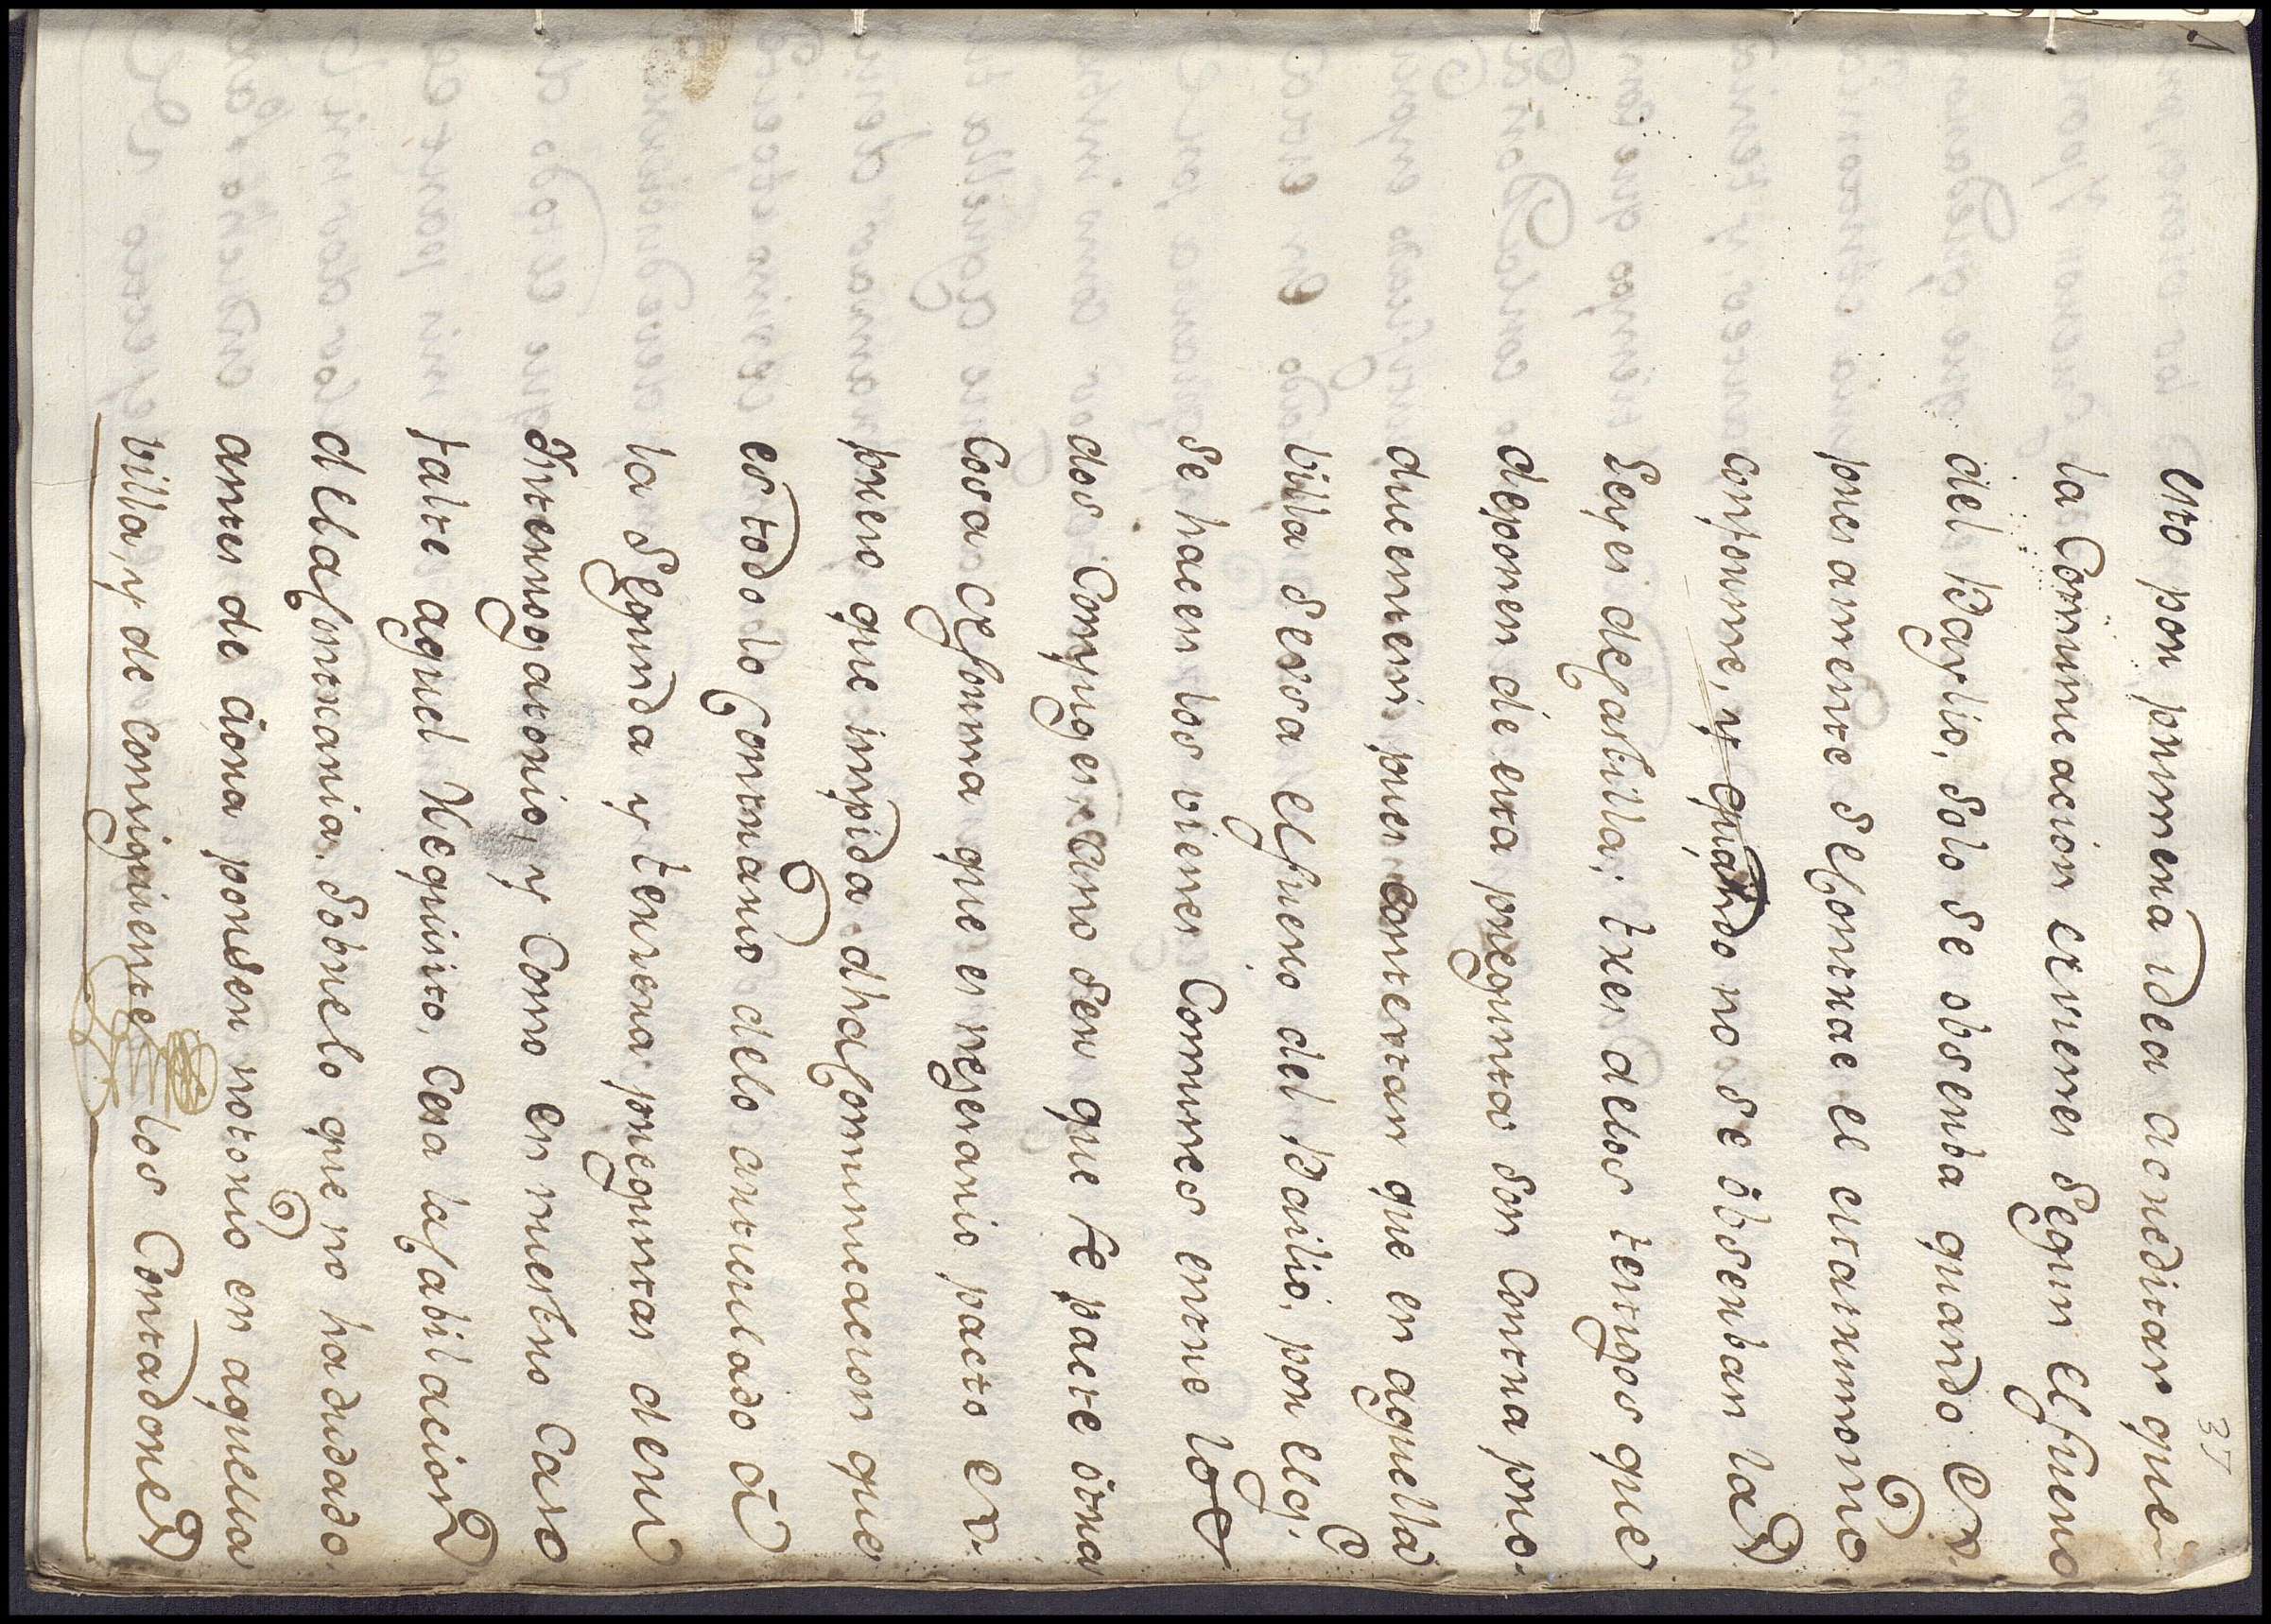 37
esto por primera idea acreditar que
la Comunicacion de vienes segun el fuero
del Baylio, solo se observa quando ex
presamente se Contrae el matrimonio
conforme, y quando no se observan las
Leyes de Castilla; tres de los testigos que
deponen de esta pregunta son Contra pro-
ducentem pues contextan que en aquella
villa se usa el fuero del Bailio, por el q.e
se hacen los vienes Comunes entre los
dos Conyuges sin que se pacte otra
Cosa alguna que es necesario pacto ex
preso que impida dha Comunicacion que
es todo lo Contrario de lo articulado a
la Segunda y tercera preguntas de su
Ynterrogatorio, y Como en nuestro Caso
falte aquel Requisito, cesa la
de la Contraria, sobre lo que no ha dudado
antes de aora por ser notorio en aquella
villa, y de consiguiente los Contadores